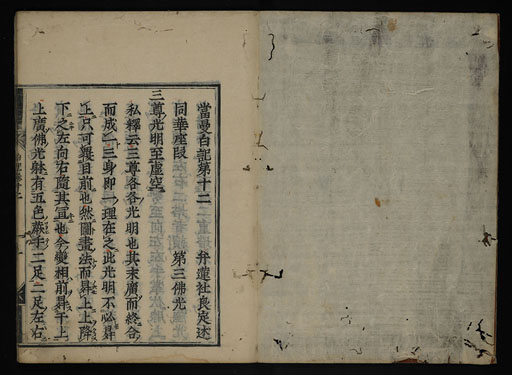 當曼白記第十二 辨蓮社良定述
同華座段 第三佛光
三尊光明至虚空
私釋云三尊各各光明也其末廣而終合
而成一三身即一理在之此光明不必昇
上只可輟目前也然圖畫法而昇上上降
下之左向右隨其宜也今變相前昇于上
上廣佛光躰有五色蘇手二足二足左右